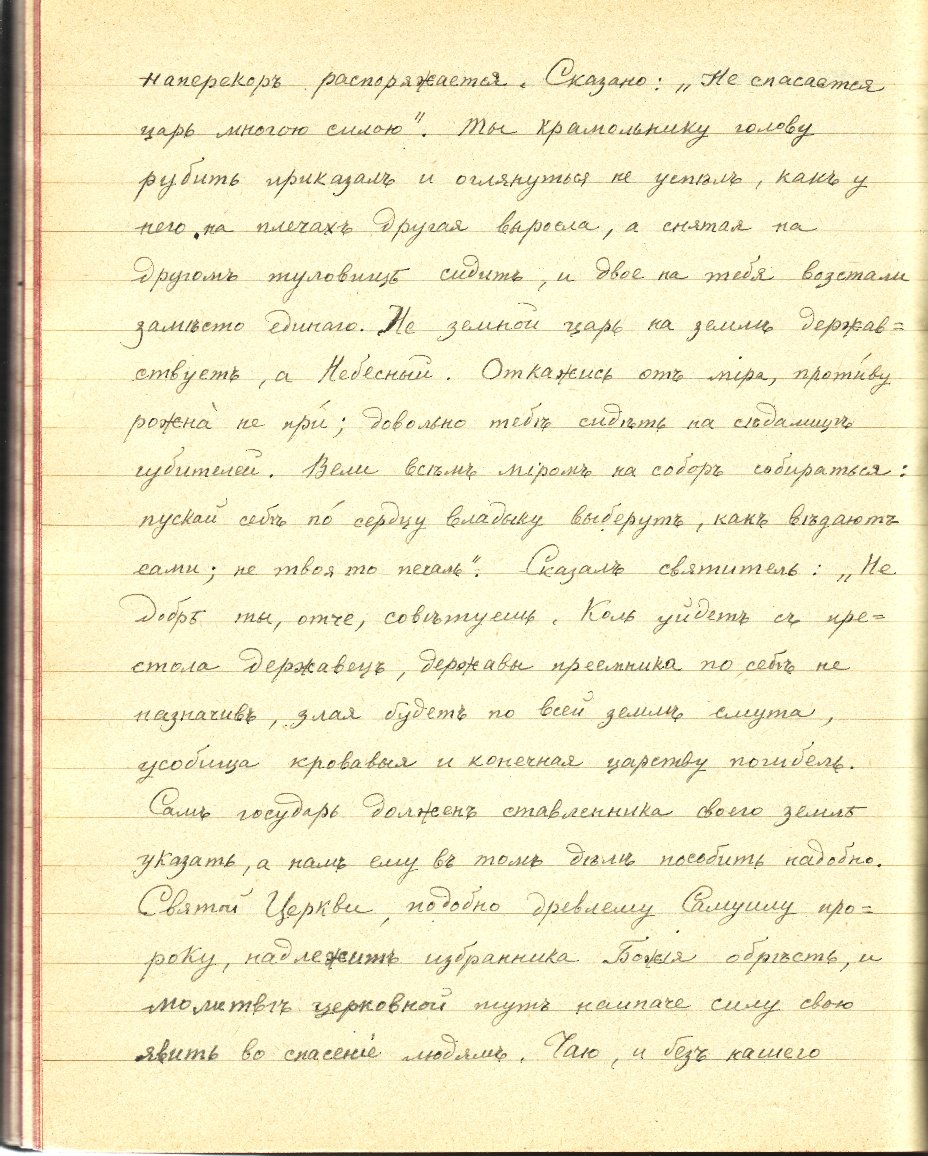 наперекоръ распоряжается. Сказано: „Не спасается
царь многою силою“. Ты крамольнику голову
рубить приказалъ и оглянуться не успѣлъ, какъ у
него на плечахъ другая выросла, а снятая на
другомъ туловищѣ сидитъ, и двое на тебя возстали
замѣсто единаго. Не земной царь на землѣ держав=
ствуетъ, а Небесный. Откажись отъ міра, проти́ву
рожна̀ не при́; довольно тебѣ сидѣть на сѣдалищѣ
губителей. Вели всѣмъ міромъ на соборъ собираться:
пускай себѣ по́ сердцу владыку выберутъ, какъ вѣдаютъ
сами; не твоя то печаль“. Сказалъ святитель: „Не
добрѣ ты, отче, совѣтуешь. Коль уйдетъ съ пре=
стола державецъ, державы преемника по себѣ не
назначивъ, злая будетъ по всей землѣ смута,
усобица кровавыя и конечная царству погибель.
Самъ государь долженъ ставленника своего землѣ
указать, а намъ ему въ томъ дѣлѣ пособить надобно.
Святой Церкви, подобно древлему Самуилу про=
року, надлежитъ избранника Божія обрѣсть, и
молитвѣ церковной тутъ наипаче силу свою
явить во спасеніе людямъ. Чаю, и безъ нашего